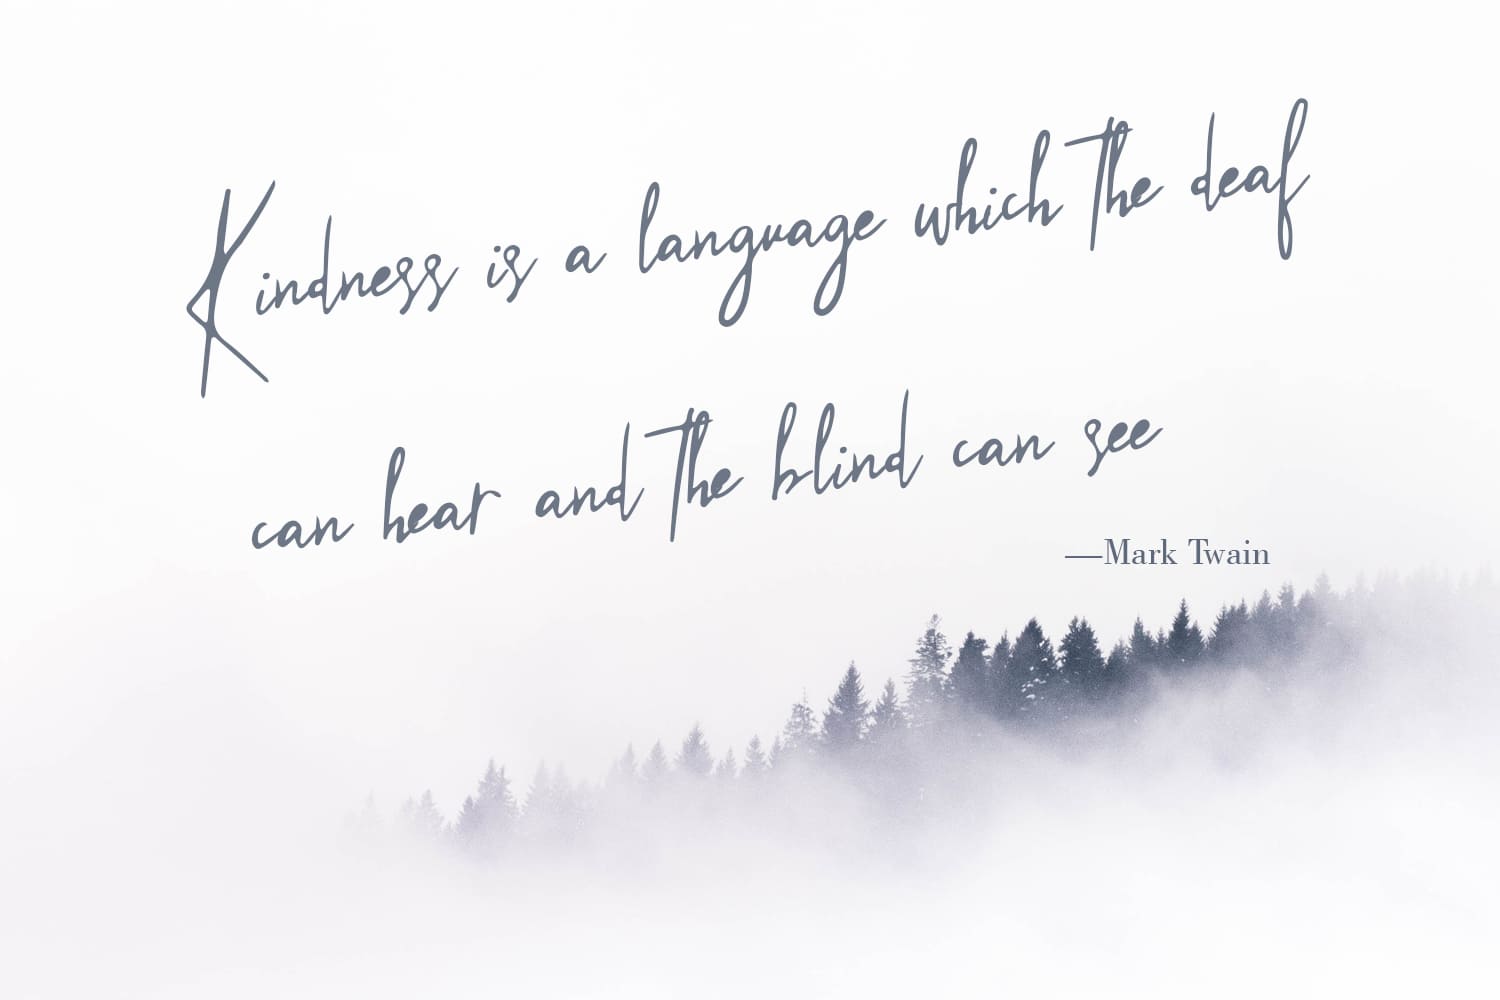 Kindness is a language which the deaf
can hear and the blind can see
—Mark Twain